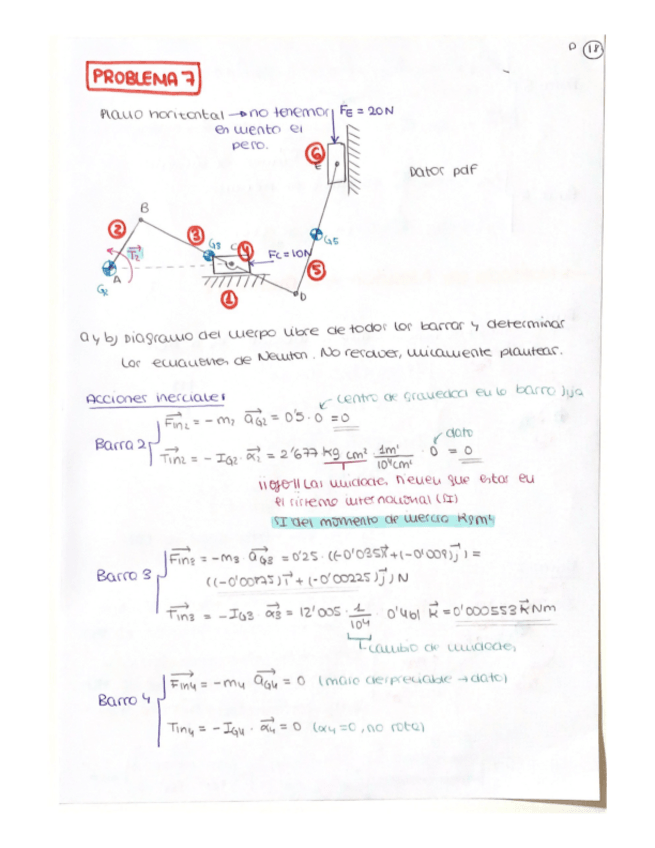 D 18
PROBLEMA 7
Plano horizontal → no tenemos
en cuenta el
peso.
FE = 20N
6
E
Datos pdf
B
2
3
G3
C
4
FC = 10N
G5
T2
A
G2
5
1
D
a y b) Diagrama del cuerpo libre de todas las barras y determinar
las ecuaciones de Newton. No resolver, únicamente plantear.
Acciones inerciales
centro de gravedad en la barra fija
Barra 2
Fin2 = -m2 aG2 = 0'5 · 0 = 0
dato
Tin2 = - IG2 · α2 = 2'677 kg cm² · 1m² / 10⁴cm² · 0 = 0
¡¡ojo!! Las unidades tienen que estar en
el sistema internacional (SI)
SI del momento de inercia kgm²
Barra 3
Fin3 = -m3 · aG3 = 0'25 · ((-0'035i + (-0'009)j) =
((-0'00875)i + (-0'00225)j) N
Tin3 = - IG3 · α3 = 12'005 · 1/10⁴ · 0'461 k = 0'000553 k Nm
cambio de unidades
Barra 4
Fin4 = -m4 aG4 = 0 (masa despreciable → dato)
Tin4 = - IG4 · α4 = 0 (α4 = 0, no rota)